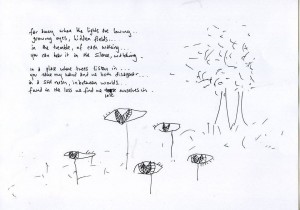 far away when the lights are burning...
growing eyes, hidden fields...
in the tremble, of each nothing...
you can hear it in the silence, watching.
in a place where trees listen in...
you take my hand and we both disappear...
in a still room, in between words
found in the loss we find we ourselves in.